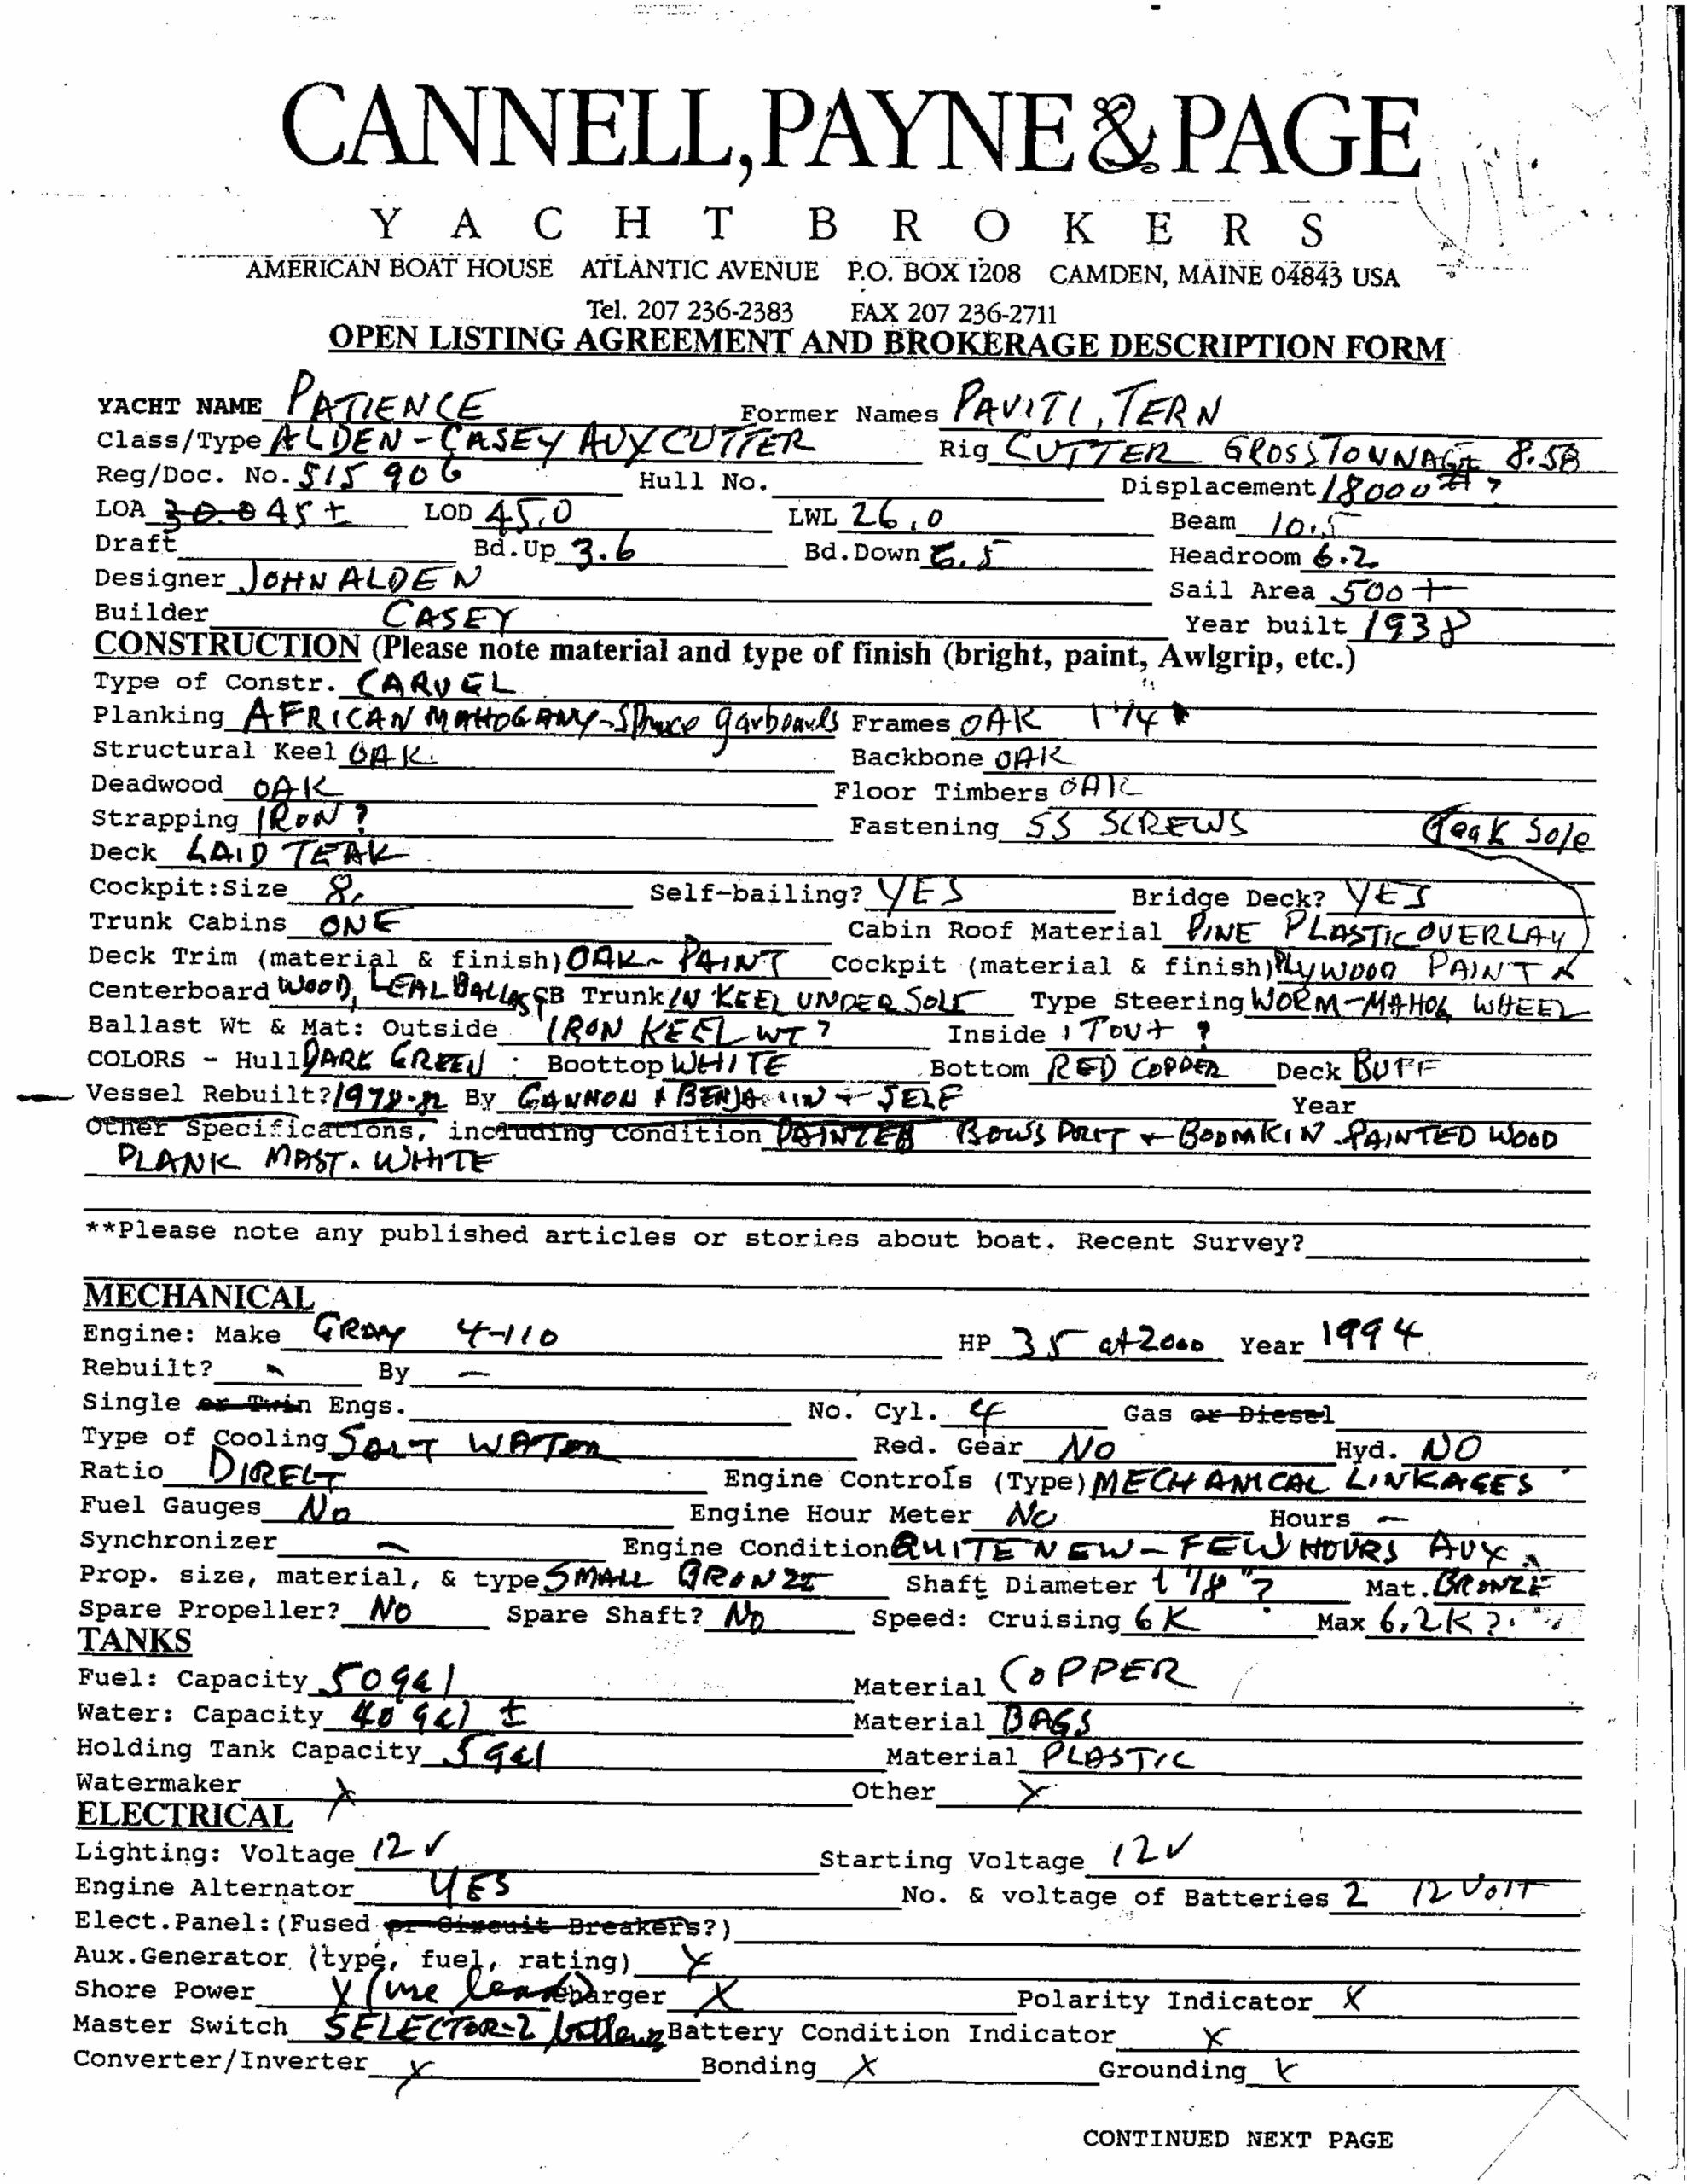 CANNELL, PAYNE & PAGE
YACHT BROKERS
AMERICAN BOAT HOUSE ATLANTIC AVENUE P.O. BOX 1208 CAMDEN, MAINE 04843 USA
Tel. 207 236-2383 FAX 207 236-2711
OPEN LISTING AGREEMENT AND BROKERAGE DESCRIPTION FORM
YACHT NAME PATIENCE Former Names PAVITI, TERN
Class/Type ALDEN-CASEY AUX CUTTER Rig CUTTER GROSS TONNAGE 8.58
Reg/Doc. No. 515 906 Hull No. Displacement 18000 # ?
LOA 30.0 45 ± LOD 45.0 LWL 26.0 Beam 10.5
Draft Bd.Up 3.6 Bd.Down 6.5 Headroom 6.2
Designer JOHN ALDEN Sail Area 500 +
Builder CASEY Year built 1938
CONSTRUCTION (Please note material and type of finish (bright, paint, Awlgrip, etc.)
Type of Constr. CARVEL
Planking AFRICAN MAHOGANY-Spruce garboards Frames OAK 1 1/4"
Structural Keel OAK Backbone OAK
Deadwood OAK Floor Timbers OAK
Strapping IRON ? Fastening SS SCREWS Teak Sole
Deck LAID TEAK
Cockpit:Size 8. Self-bailing? YES Bridge Deck? YES
Trunk Cabins ONE Cabin Roof Material PINE PLASTIC OVERLAY
Deck Trim (material & finish) OAK - PAINT Cockpit (material & finish) PLYWOOD PAINT
Centerboard WOOD, LEAD BALLAST CB Trunk IN KEEL UNDER SOLE Type Steering WORM-MAHOG WHEEL
Ballast Wt & Mat: Outside IRON KEEL WT ? Inside 1 TON + ?
COLORS - Hull DARK GREEN Boottop WHITE Bottom RED COPPER Deck BUFF
Vessel Rebuilt? 1978-82 By GANNON & BENJAMIN + SELF Year
Other Specifications, including Condition PAINTED BOWSPRIT + BOOMKIN PAINTED WOOD
PLANK MAST. WHITE
**Please note any published articles or stories about boat. Recent Survey?
MECHANICAL
Engine: Make GRAY 4-110 HP 35 at 2000 Year 1994
Rebuilt? - By -
Single or Twin Engs. No. Cyl. 4 Gas or Diesel
Type of Cooling SALT WATER Red. Gear NO Hyd. NO
Ratio DIRECT Engine Controls (Type) MECHANICAL LINKAGES
Fuel Gauges No Engine Hour Meter NO Hours -
Synchronizer - Engine Condition QUITE NEW - FEW HOURS AUX.
Prop. size, material, & type SMALL BRONZE Shaft Diameter 1 1/8"? Mat. BRONZE
Spare Propeller? NO Spare Shaft? NO Speed: Cruising 6 K Max 6.2K ?
TANKS
Fuel: Capacity 50 gal Material COPPER
Water: Capacity 40 gal ± Material BAGS
Holding Tank Capacity 5 gal Material PLASTIC
Watermaker X Other X
ELECTRICAL
Lighting: Voltage 12 V Starting Voltage 12 V
Engine Alternator YES No. & voltage of Batteries 2 12 Volt
Elect.Panel: (Fused or Circuit Breakers?)
Aux.Generator (type, fuel, rating) X
Shore Power X (use leads) Charger X Polarity Indicator X
Master Switch SELECTOR-2 battery Battery Condition Indicator X
Converter/Inverter X Bonding X Grounding X
CONTINUED NEXT PAGE